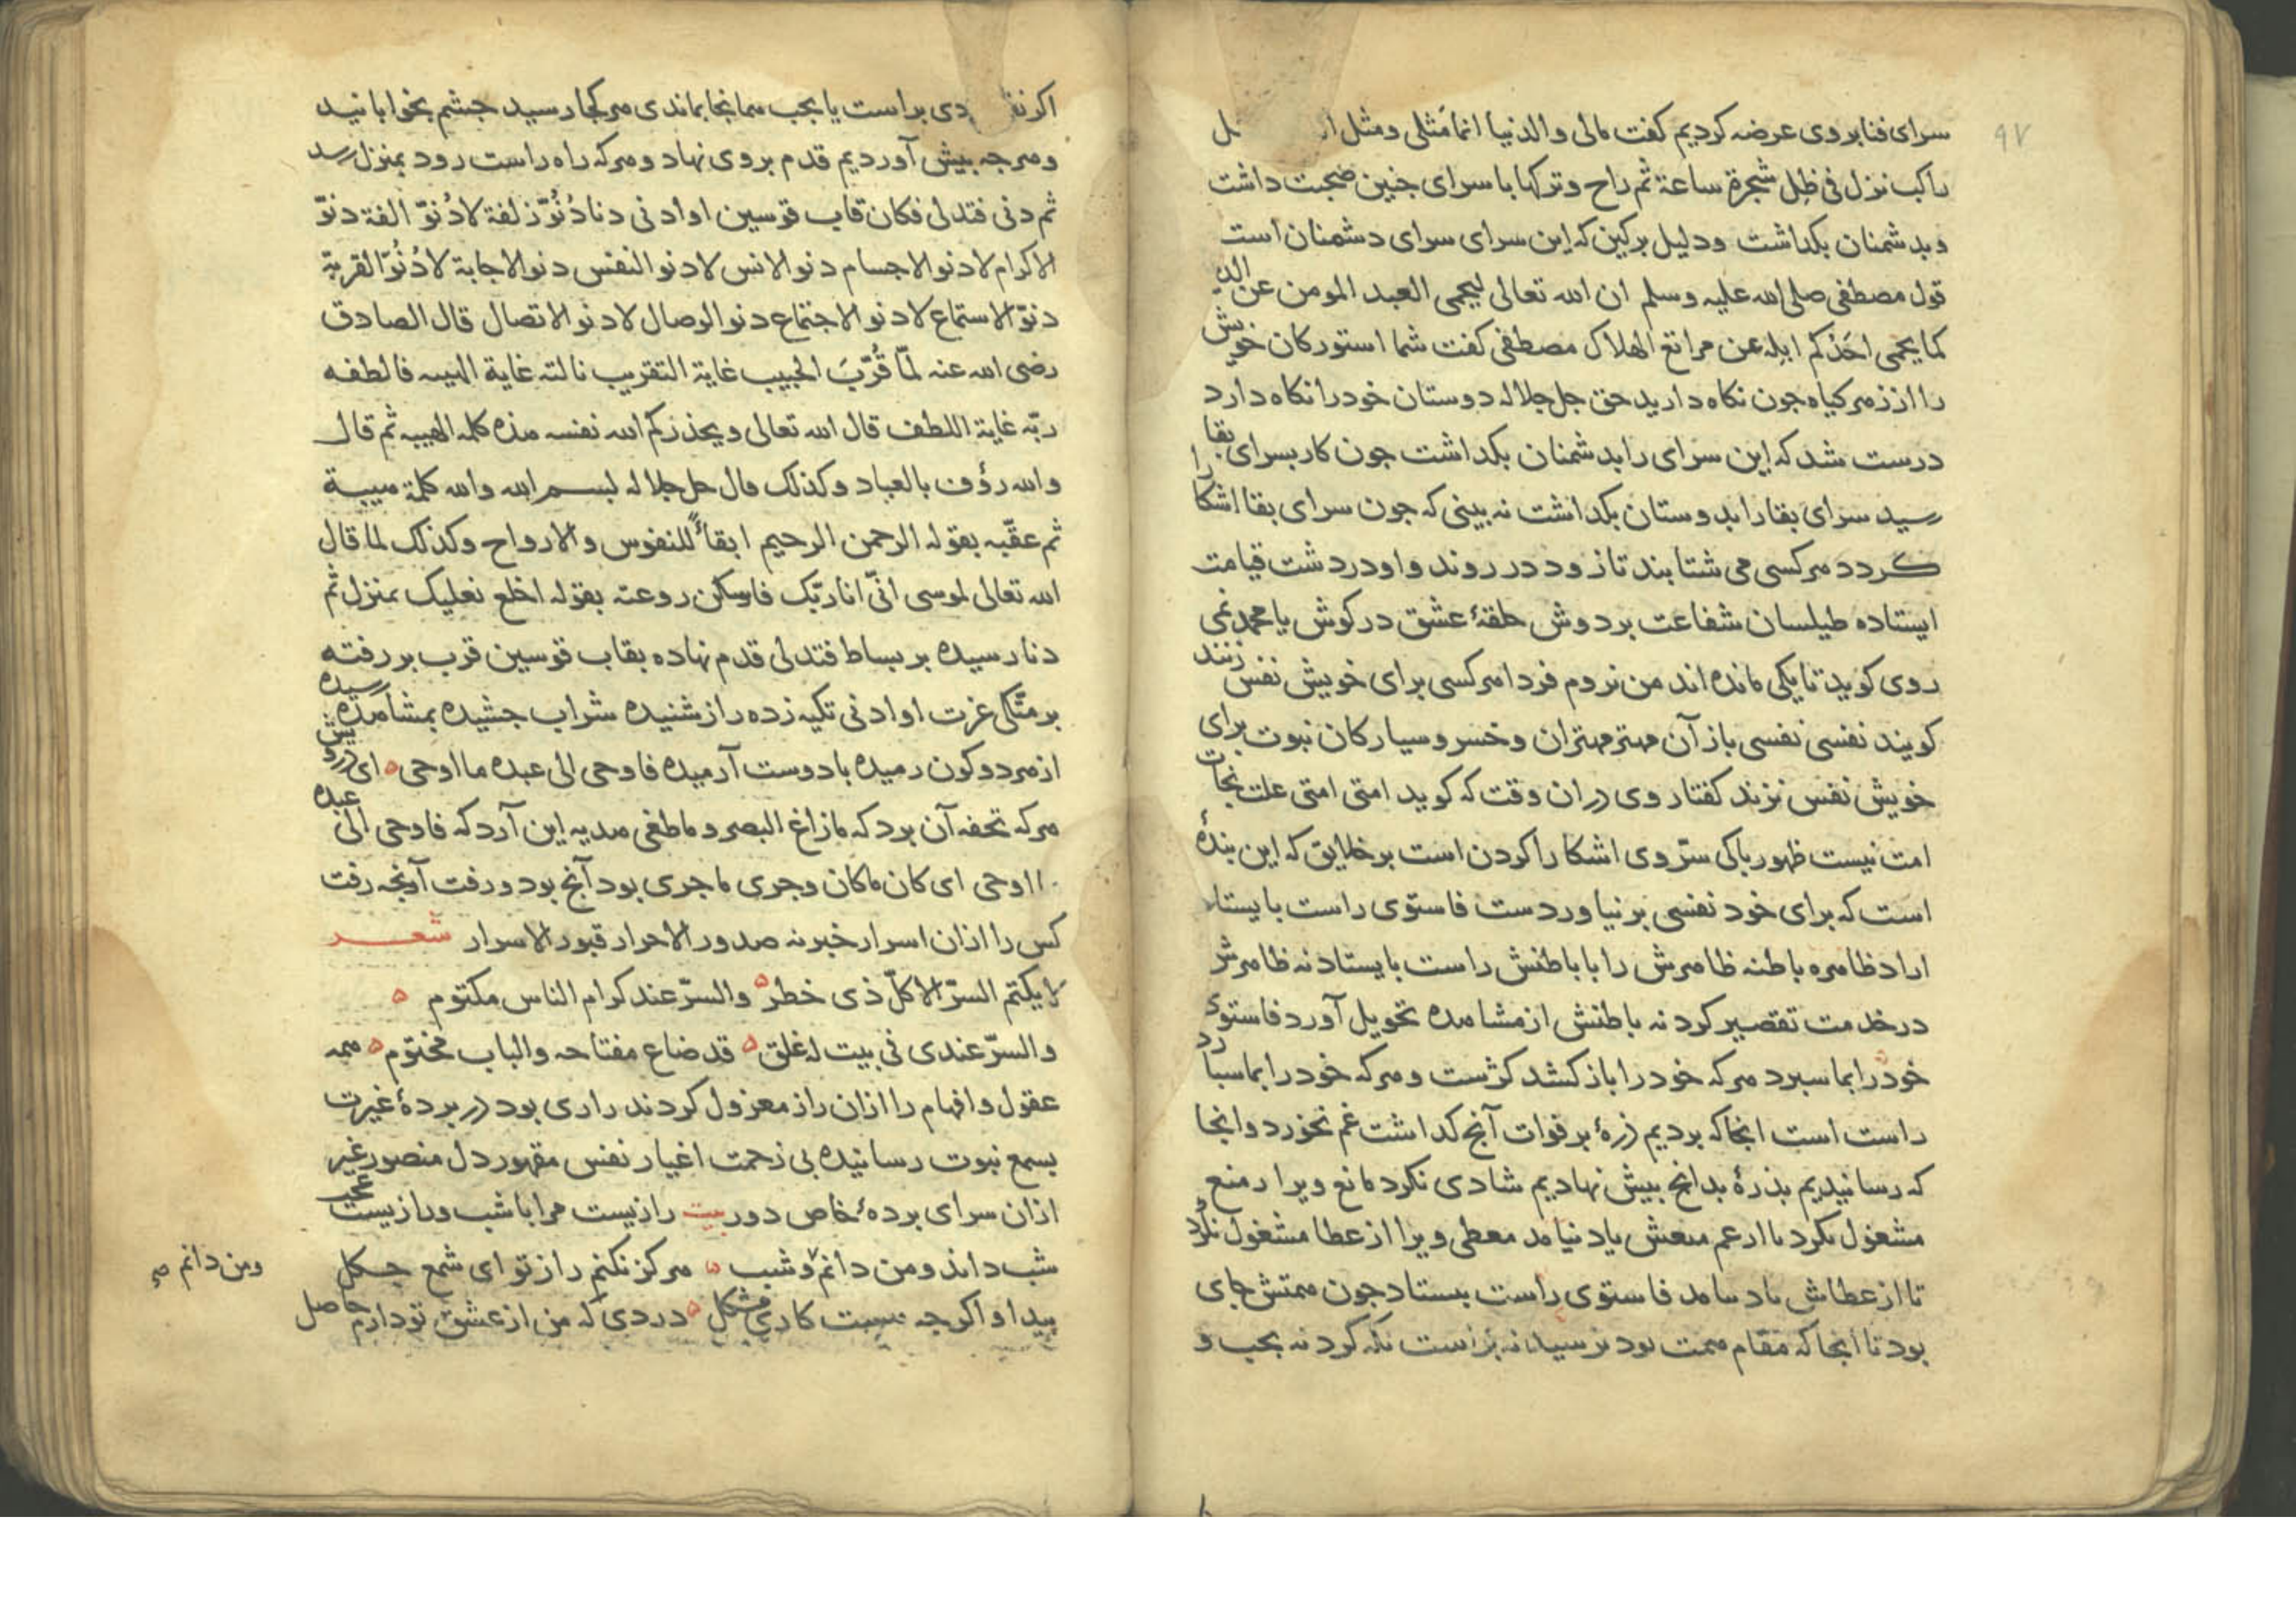 ۹۷
سرای فنا بروی عرضه کردیم کفت مالی والدنیا انما مثلی ومثل
راکب نزل فی ظل شجرة ساعة ثم راح وترکها با سرای جنین صحبت داشت
وبدشمنان بکداشت ودلیل برکین که این سرای سرای دشمنان است
قول مصطفی صلی الله علیه وسلم ان الله تعالی لیحمی العبد المومن عن
کما یحمی احدکم ابله عن مراتع الهلاک مصطفی کفت شما استورکان خویش
را از زهر کیاه جون نکاه دارید حق جل جلاله دوستان خود را نکاه دارد
درست شد که این سرای را بدشمنان بکداشت جون کار بسرای بقا
رسید سرای بقا را بدوستان بکداشت نه بینی که جون سرای بقا اشکارا
کردد هرکسی می شتابند تا زود در روند و او در دشت قیامت
ایستاده طیلسان شفاعت بردوش حلقهٔ عشق در کوش یا محمد نمی
روی کوید تا یکی مانده اند من نروم فردا هرکسی برای خویش نفس زنند
کویند نفسی نفسی باز آن مهتر مهتران وخسرو سیارکان نبوت برای
خویش نفس نزند کفتار وی دران وقت که کوید امتی امتی علت نجات
امت نیست ظهور باکی سرّ وی اشکارا کردن است برخلایق که این بندهٔ
است که برای خود نفسی برنیاوردست فاستوی راست بایستاد
اراد ظاهره باطنه ظاهرش را با باطنش راست بایستاد نه ظاهرش
در خدمت تقصیر کرد نه باطنش از مشاهده تحویل آورد فاستوی
خود را بما سبرد هرکه خود را باز کشد کژست وهرکه خود را بما سبارد
راست است انجا که بردیم ذرهٔ بر فوات آنج کداشت غم نخورد وانجا
که رسانیدیم بذرهٔ بدانج بیش نهادیم شادی نکرد مانع ویرا ار منع
مشغول نکرد تا ازعم منعش یاد نیامد معطی ویرا از عطا مشغول نکرد
تا از عطاش یاد نیامد فاستوی راست بیستاد جون همتش جای
بود تا انجا که مقام همت بود نرسید نه براست نکه کرد نه بجب و
اکر دی براست یا بجب همانجا بماندی هرکجا رسید جشم بخوابانید
وهرجه بیش آوردیم قدم بروی نهاد وهرکه راه راست رود بمنزل رسد
ثم دنی فتدلی فکان قاب قوسین او ادنی دنا دُنُوَّ زلفة لا دُنوّ الفة دنوّ
الاکرام لا دنو الاجسام دنو الانس لا دنو النفس دنو الاجابة لا دُنُوّ القربة
دنوّ الاستماع لا دنو الاجتماع دنو الوصال لا دنو الاتصال قال الصادق
رضی الله عنه لمّا قُرِّبَ الحبیب غایة التقریب نالته غایة الهیبه فالطفه
ربّه غایة اللطف قال الله تعالی ویحذرکم الله نفسه هذه کلمة الهیبه ثم قال
والله رؤف بالعباد وکذلک قال جل جلاله بسم الله والله کلمة هیبة
ثم عقّبه بقوله الرحمن الرحیم ابقاءً للنفوس والارواح وکذلک لما قال
الله تعالی لموسی انّی انا ربّک فاسکن روعته بقوله اخلع نعلیک بمنزل ثم
دنا رسیده بر بساط فتدلی قدم نهاده بقاب قوسین قرب بر رفته
بر متّکی عزت او ادنی تکیه زده راز شنیده شراب جشیده بمشاهده رسیده
از هر دو کون رمیده با دوست آرمیده فاوحی الی عبده ما اوحی ه ای درویش
هرکه تحفه آن برد که مازاغ البصر وماطغی هدیه این آرد که فاوحی الی عبده
ما اوحی ای کان ماکان وجری ماجری بود آنج بود ورفت آنجه رفت
کس را ازان اسرار خبر نه صدور الاحرار قبور الاسرار شعر
لا یکتم السرّ الا کلّ ذی خطر ه والسرّ عند کرام الناس مکتوم ه
والسرّ عندی فی بیت له غلق ه قد ضاع مفتاحه والباب مختوم ه همه
عقول وافهام را ازان راز معزول کردند رازی بود در بردهٔ غیرت
بسمع نبوت رسانیده بی زحمت اغیار نفس مقهور دل منصور غیر
ازان سرای بردهٔ خاص دور بیت رازیست مرا با شب ورازیست عجب
شب داند ومن دانم وشب ه هرکز نکنم راز تو ای شمع جکل
ومن دانم صح
بیدا و اکرجه هست کاری مشکل ه دردی که من از عشق تو دارم حاصل